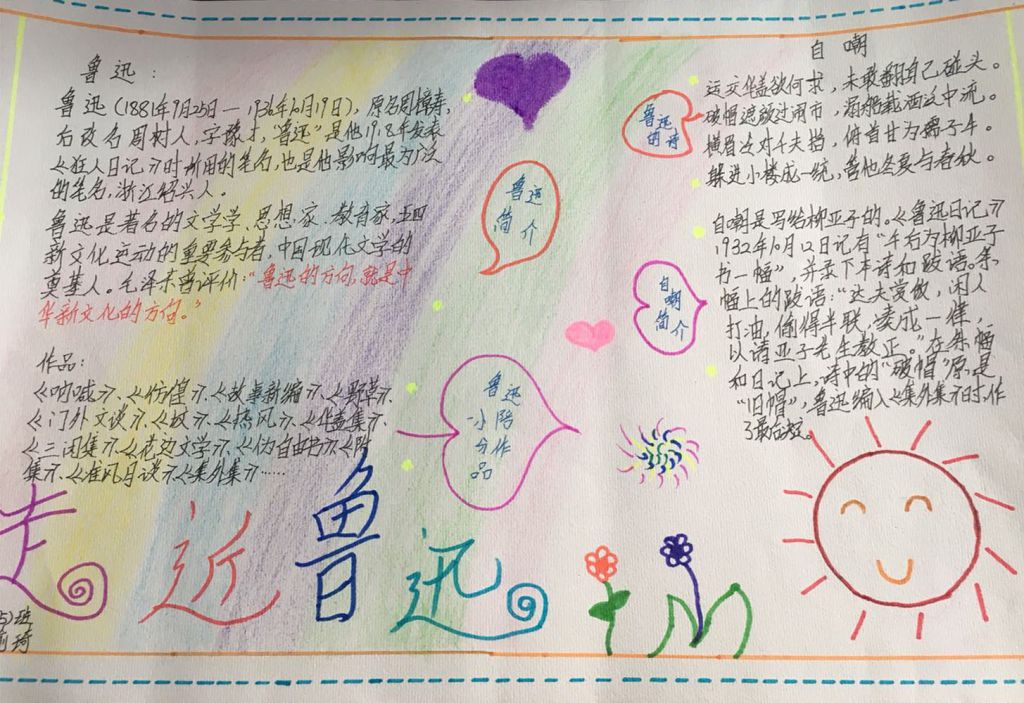 鲁迅：
鲁迅(1881年9月25日—1936年10月19日)，原名周樟寿，
后改名周树人，字豫才，“鲁迅”是他1918年发表
《狂人日记》时所用的笔名，也是他影响最为广泛
的笔名，浙江绍兴人。
鲁迅是著名的文学学、思想家、教育家，五四
新文化运动的重要参与者，中国现代文学的
奠基人。毛泽东曾评价：“鲁迅的方向，就是中
华新文化的方向。”
作品：
《呐喊》、《彷徨》、《故事新编》、《野草》、
《门外文谈》、《坟》、《热风》、《华盖集》、
《三闲集》、《花边文学》、《伪自由书》、《
集》、《准风月谈》、《集外集》……
鲁迅
简介
鲁迅
的诗
自嘲
简介
鲁迅
小陪
分作
品
自嘲
运交华盖欲何求，未敢翻身已碰头。
破帽遮颜过闹市，漏船载酒泛中流。
横眉冷对千夫指，俯首甘为孺子牛。
躲进小楼成一统，管他冬夏与春秋。
自嘲是写给柳亚子的。《鲁迅日记》
1932年10月12日记有“午后为柳亚子
书一幅”，并录下本诗和跋语。条
幅上的跋语：“达夫赏饭，闲人
打油，偷得半联，凑成一律，
以请亚子先生教正。”在条幅
和日记上，诗中的“破帽”原是
“旧帽”，鲁迅编入《集外集》时，作
了最后
走近鲁迅
5)班
琦